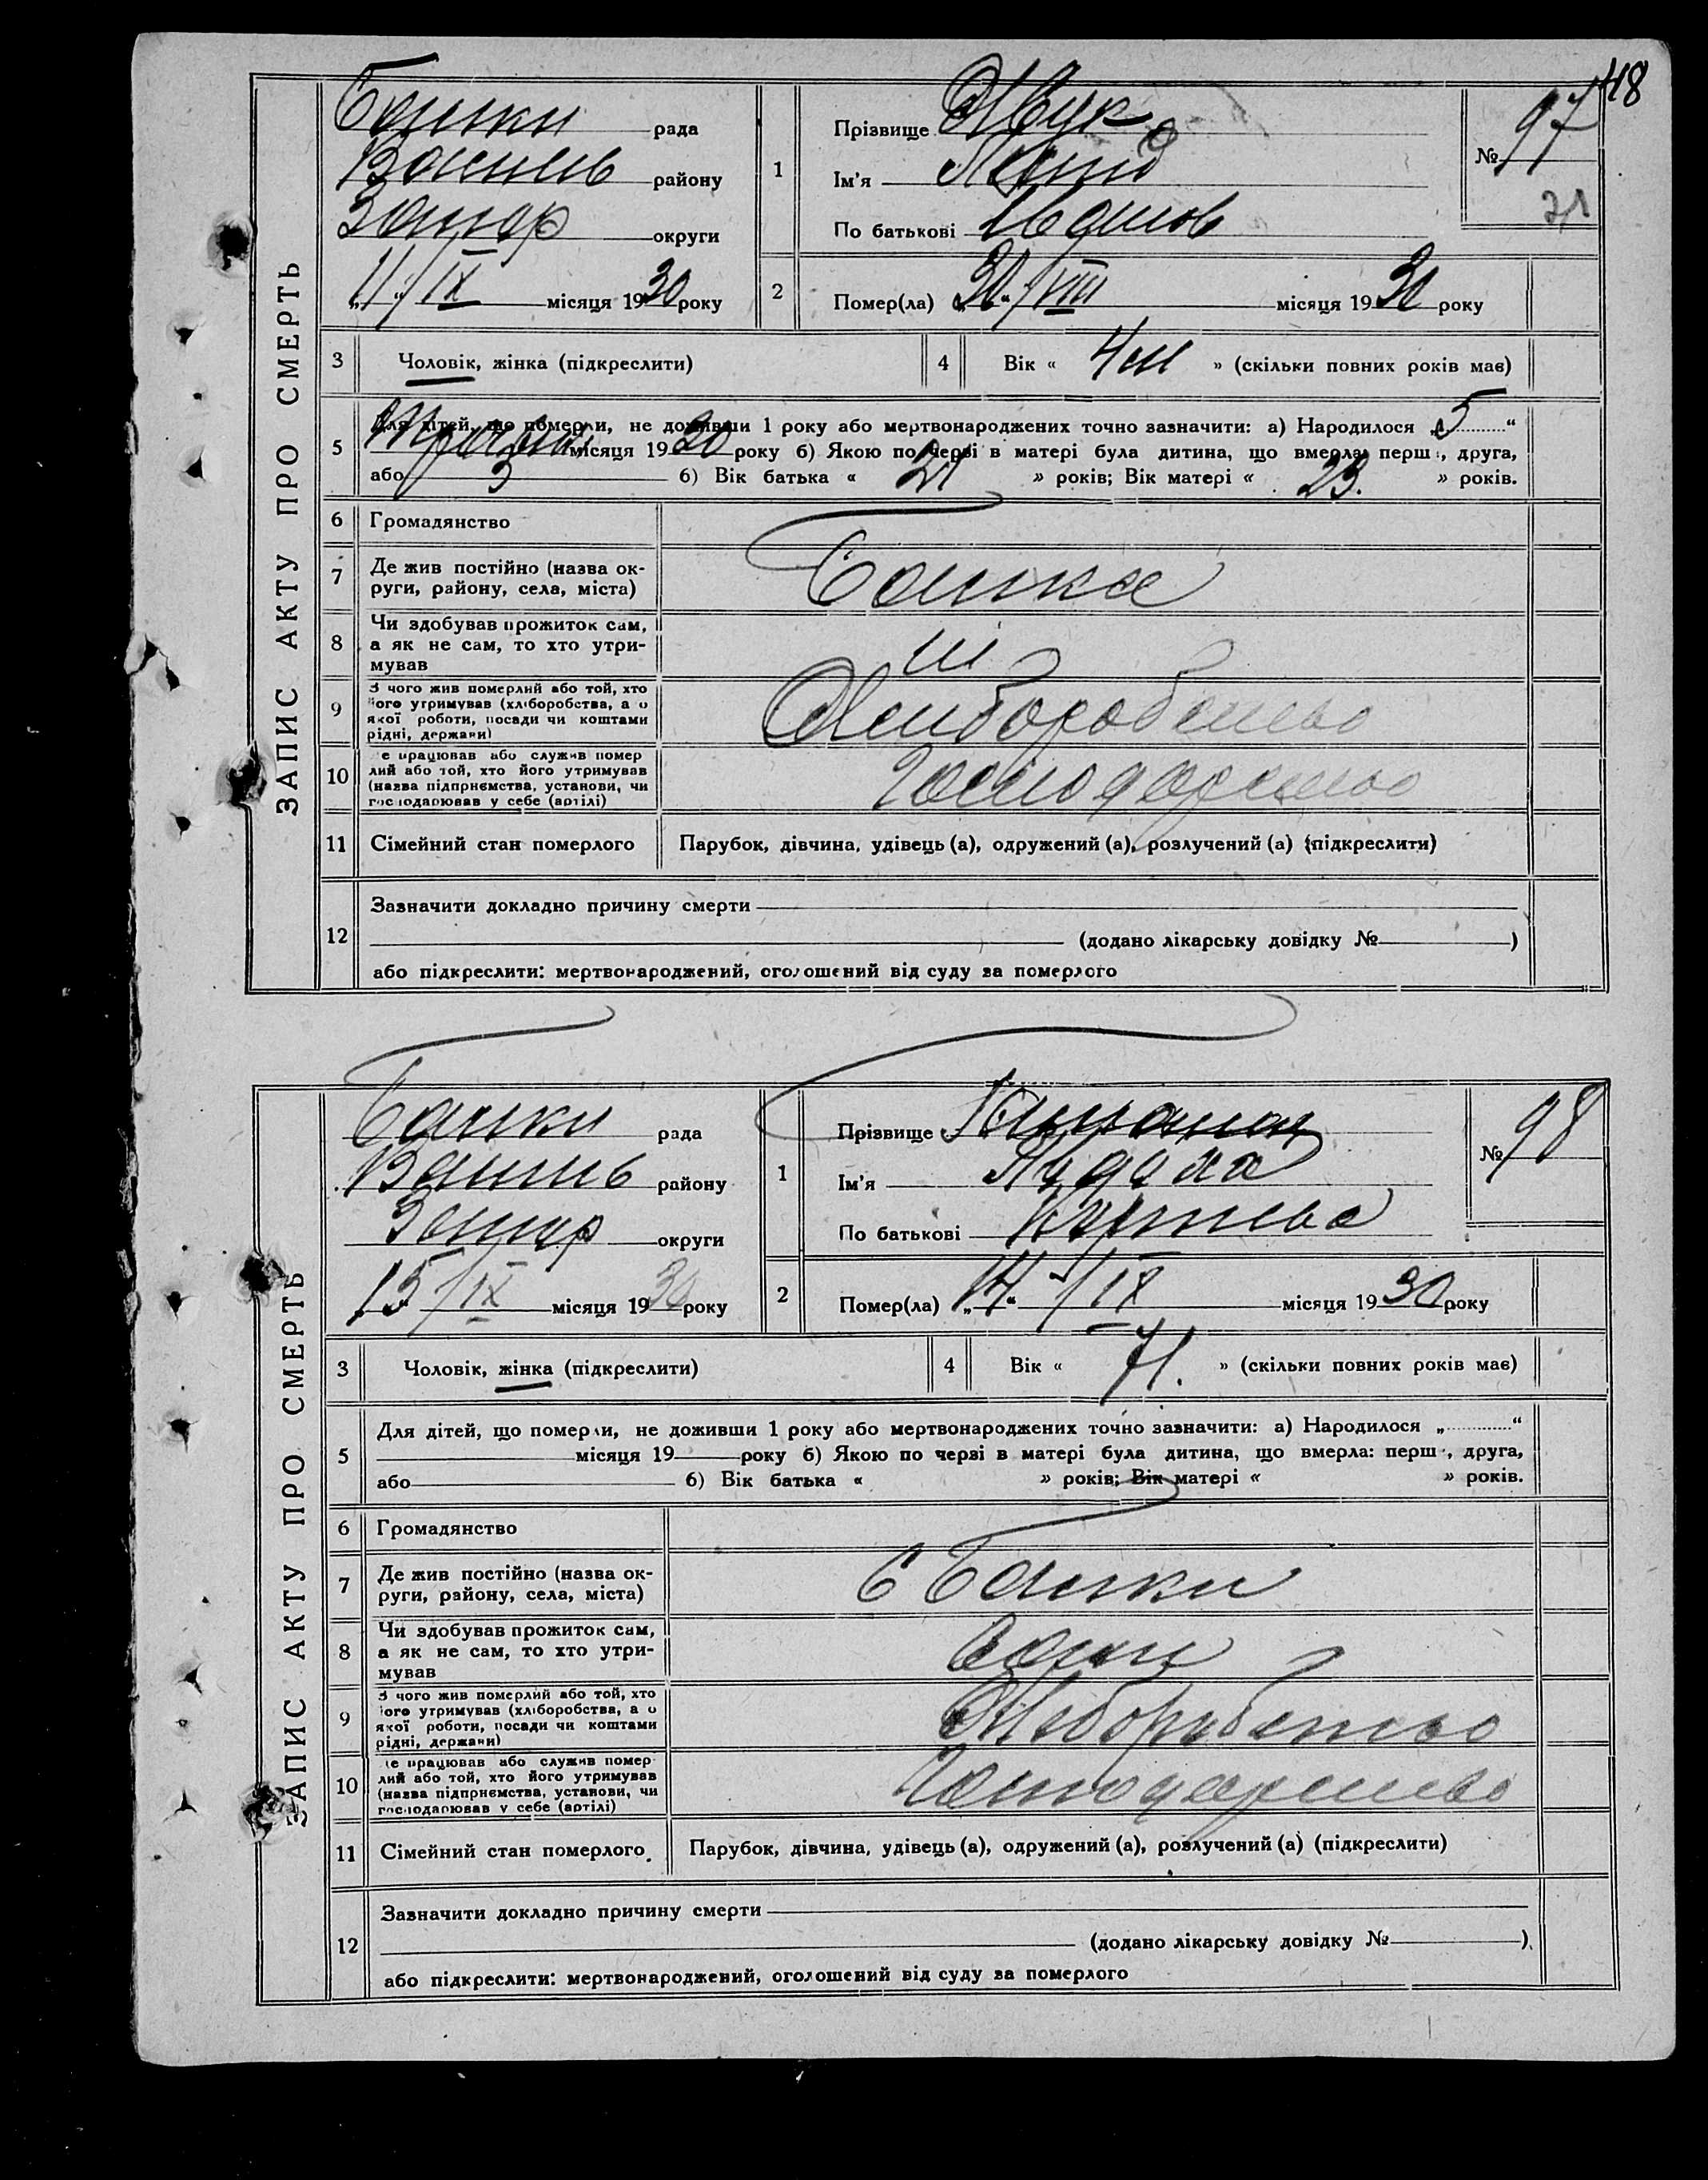 48
ЗАПИС АКТУ ПРО СМЕРТЬ
рада
району
округи
„11“/IX місяця 1930 року
1
Прізвище Жук
Ім'я
По батькові Иванов
№ 97
2
Помер(ла) „30“/VIII місяця 1930 року
3
Чоловік, жінка (підкреслити)
4
Вік « 4 м » (скільки повних років має)
5
Для дітей, що померли, не доживши 1 року або мертвонароджених точно зазначити: а) Народилося „5“
місяця 1930 року б) Якою по черзі в матері була дитина, що вмерла: перша, друга,
або 3 б) Вік батька « » років; Вік матері « 23. » років.
6
Громадянство
7
Де жив постійно (назва ок-
руги, району, села, міста)
8
Чи здобував прожиток сам,
а як не сам, то хто утри-
мував
9
З чого жив померлий або той, хто
його утримував (хліборобства, а о
якої роботи, посади чи коштами
рідні, держави)
Хлиборобство
10
е працював або служив помер
лий або той, хто його утримував
(назва підприємства, установи, чи
господарював у себе (артілі)
Господарство
11
Сімейний стан померлого
Парубок, дівчина, удівець (а), одружений (а), розлучений (а) (підкреслити)
12
Зазначити докладно причину смерти
(додано лікарську довідку № )
або підкреслити: мертвонароджений, оголошений від суду за померлого
ЗАПИС АКТУ ПРО СМЕРТЬ
рада
району
округи
„15“/IX місяця 1930 року
1
Прізвище
Ім'я
По батькові
№ 98
2
Помер(ла) „14“/IX місяця 1930 року
3
Чоловік, жінка (підкреслити)
4
Вік « 71. » (скільки повних років має)
5
Для дітей, що померли, не доживши 1 року або мертвонароджених точно зазначити: а) Народилося „ “
місяця 19 року б) Якою по черзі в матері була дитина, що вмерла: перш , друга,
або б) Вік батька « » років; Вік матері « » років.
6
Громадянство
7
Де жив постійно (назва ок-
руги, району, села, міста)
8
Чи здобував прожиток сам,
а як не сам, то хто утри-
мував
9
З чого жив померлий або той, хто
його утримував (хліборобства, а о
якої роботи, посади чи коштами
рідні, держави)
Хлиборобство
10
е працював або служив помер
лий або той, хто його утримував
(назва підприємства, установи, чи
господарював у себе (артілі)
Господарство
11
Сімейний стан померлого
Парубок, дівчина, удівець (а), одружений (а), розлучений (а) (підкреслити)
12
Зазначити докладно причину смерти
(додано лікарську довідку № )
або підкреслити: мертвонароджений, оголошений від суду за померлого